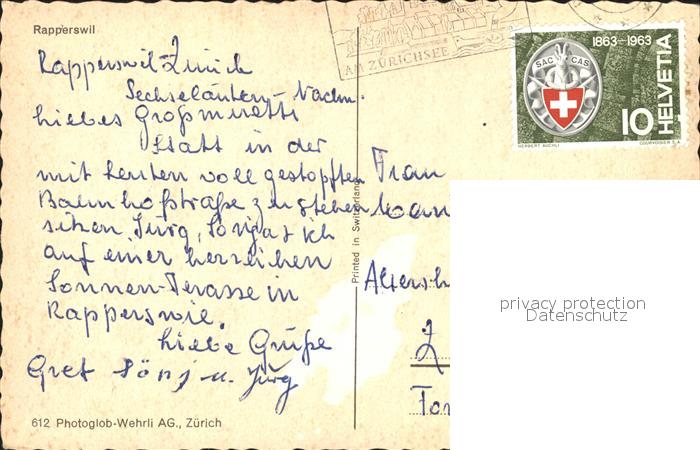 Rapperswil
Rapperswil-Zürich
Sechseläuten-Nachm.
liebes Großmuetti
Statt in der
mit Leuten voll gestopften
Bahnhofstraße zu stehen
sitzen Jürg, Sönj u. ich
auf einer herzlichen
Sonnen-Terasse in
Rapperswil.
Liebe Grüße
Gret Sönj u. Jürg
612 Photoglob-Wehrli AG., Zürich
Printed in Switzerland
AM ZÜRICHSEE
1863-1963
SAC CAS
10 HELVETIA
HERBERT AUCHLI
COURVOISIER S.A.
Frau
Altersh
Z
privacy protection
Datenschutz